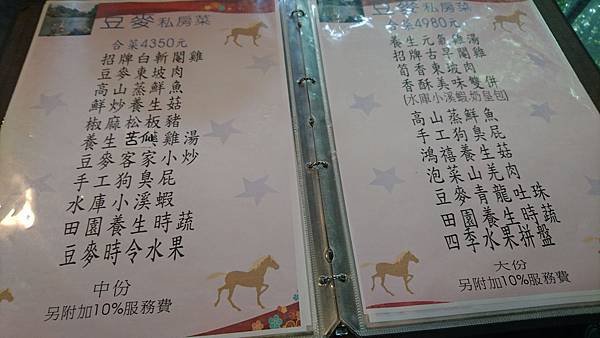 豆麥私房菜
合菜4350元
招牌白斬閹雞
豆麥東坡肉
高山蒸鮮魚
鮮炒養生菇
椒麻松板豬
養生苦 雞湯
豆麥客家小炒
手工狗臭屁
水庫小溪蝦
田園養生時蔬
豆麥時令水果
中份
另附加10%服務費
豆麥私房菜
合菜4980元
養生元氣雞湯
招牌古早閹雞
筍香東坡肉
香酥美味雙併
(水庫小溪蝦.奶皇包)
高山蒸鮮魚
手工狗臭屁
鴻禧養生菇
泡菜山羌肉
豆麥青龍吐珠
田園養生時蔬
四季水果拼盤
大份
另附加10%服務費